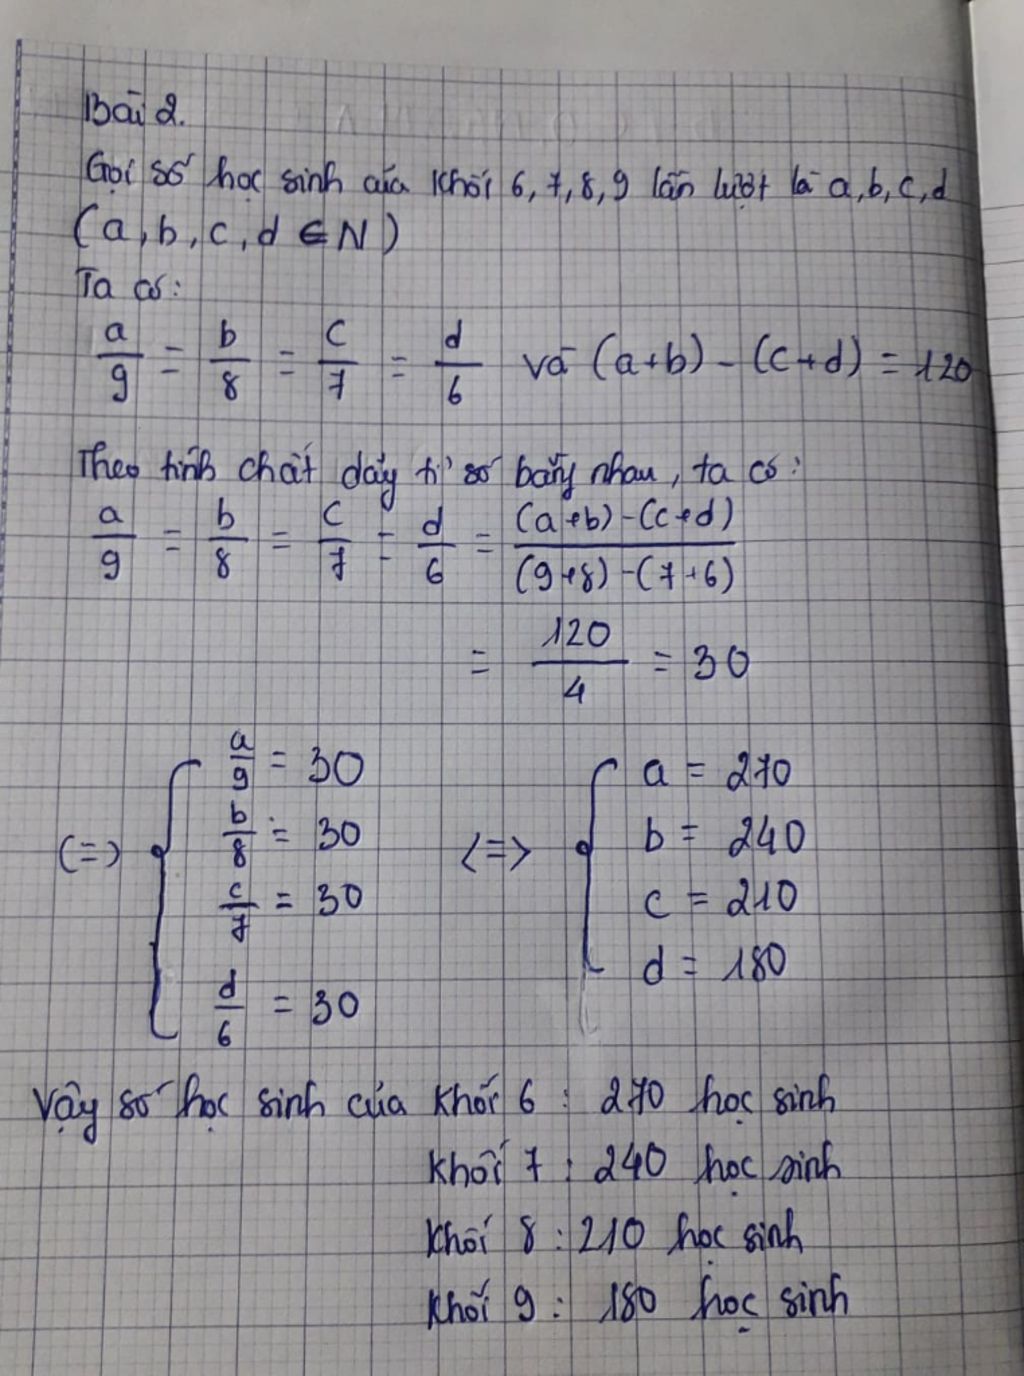 Bài 2.
Gọi số học sinh của khối 6, 7, 8, 9 lần lượt là a, b, c, d
(a, b, c, d ∈ N)
Ta có:
a/9 = b/8 = c/7 = d/6 và (a+b) - (c+d) = 120
Theo tính chất dãy tỉ số bằng nhau, ta có:
a/9 = b/8 = c/7 = d/6 = ((a+b)-(c+d))/((9+8)-(7+6))
= 120/4 = 30
a/9 = 30
b/8 = 30
(=)
c/7 = 30
d/6 = 30
<=>
a = 270
b = 240
c = 210
d = 180
Vậy số học sinh của khối 6 : 270 học sinh
khối 7 : 240 học sinh
khối 8 : 210 học sinh
khối 9 : 180 học sinh